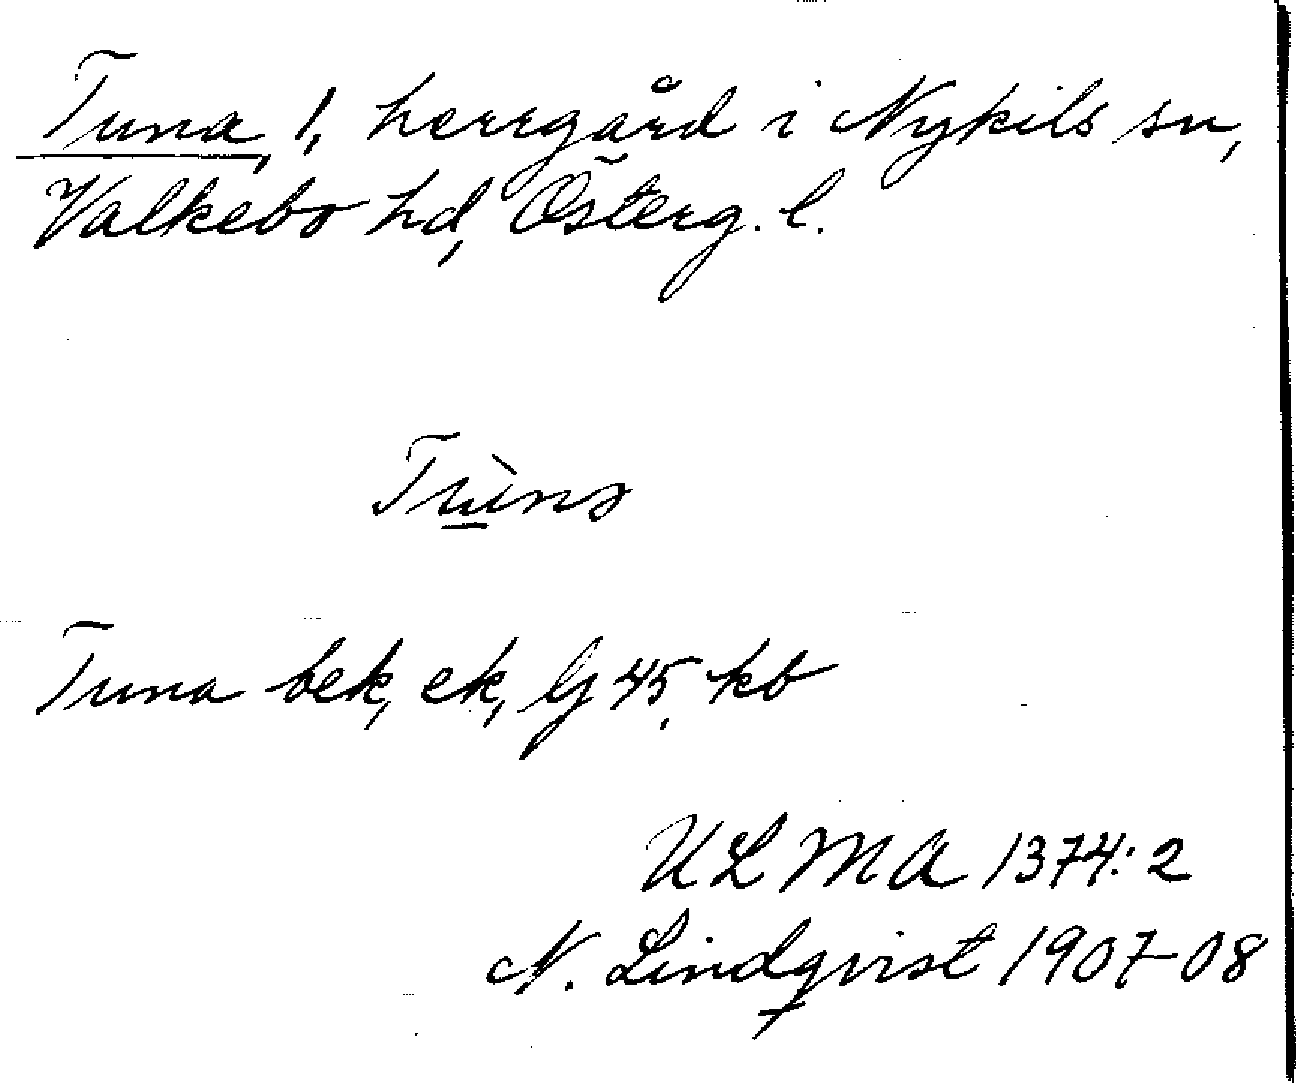 Tuna, 1, herrgård i Nykils sn,
Valkebo hd, Österg. l.
Tùna
Tuna bek, ek, lj 45, kb
ULMA 1374:2
N. Lindqvist 1907-08